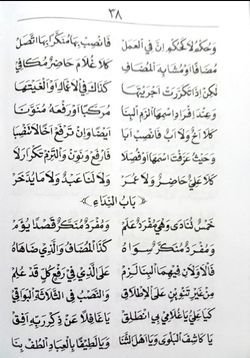 ٣٨
وَحُكْمُ لَا كَحُكْمِ إِنَّ فِي الْعَمَلْ فَانْصِبْ بِهَا مُنَكَّرًا بِهَا اتَّصَلْ
مُضَافًا أَوْ مُشَابِهَ الْمُضَافِ كَلَا غُلَامَ حَاضِرٌ مُكَافِي
لٰكِنْ إِذَا تَكَرَّرَتْ أَجْرَيْتَهَا كَذَاكَ فِي الْأَعْمَالِ أَوْ أَلْغَيْتَهَا
وَعِنْدَ إِفْرَادِ اسْمِهَا الْزَمِ الْبِنَا مُرَكَّبًا أَوْ رَفْعَهُ مُنَوَّنَا
كَلَا أَخٌ وَلَا أَبٌ فَانْصِبْ أَبَا أَيْضًا وَإِنْ تَرْفَعْ أَخًا لَا تَنْصِبَا
وَحَيْثُ عَرَّفْتَ اسْمَهَا أَوْ فُصِلَا فَارْفَعْ وَنَوِّنْ وَالْتَزِمْ تَكْرَارَ لَا
كَلَا عَلِيٌّ حَاضِرٌ وَلَا عُمَرْ وَلَا لَنَا عَبْدٌ وَلَا مَا يُدَّخَرْ
بَابُ النِّدَاءِ
خَمْسٌ تُنَادَى وَهْيَ مُفْرَدٌ عَلَمْ وَمُفْرَدٌ مُنَكَّرٌ قَصْدًا يُؤَمْ
وَمُفْرَدٌ مُنَكَّرٌ سِوَاهُ كَذَا الْمُضَافُ وَالَّذِي ضَاهَاهُ
فَالْأَوَّلَانِ فِيهِمَا الْبِنَا لَزِمْ عَلَى الَّذِي فِي رَفْعِ كُلٍّ قَدْ عُلِمْ
مِنْ غَيْرِ تَنْوِينٍ عَلَى الْإِطْلَاقِ وَالنَّصْبُ فِي الثَّلَاثَةِ الْبَوَاقِي
كَيَا عَلِيُّ يَا غُلَامِي بِي انْطَلِقْ يَا غَافِلًا عَنْ ذِكْرِ رَبِّهِ أَفِقْ
يَا كَاشِفَ الْبَلْوَى وَيَا أَهْلَ الثَّنَا وَيَا لَطِيفًا بِالْعِبَادِ الْطُفْ بِنَا